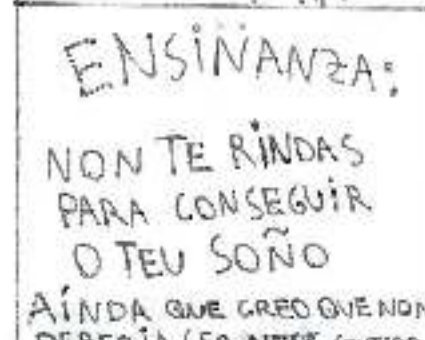 ENSINANZA:
NON TE RINDAS
PARA CONSEGUIR
O TEU SOÑO
AÍNDA QUE CREO QUE NON